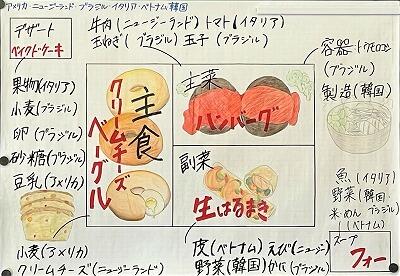 アメリカ・ニュージーランド・ブラジル・イタリア・ベトナム・韓国
デザート
ベイクドケーキ
果物(イタリア)
小麦(ブラジル)
卵(ブラジル)
砂糖(ブラジル)
豆乳(アメリカ)
牛肉(ニュージーランド)トマト(イタリア)
玉ねぎ(ブラジル)玉子(ブラジル)
主食
クリームチーズベーグル
主菜
ハンバーグ
副菜
生はるまき
容器
(ブラジル)
製造(韓国)
魚(イタリア)
野菜(韓国・
米・めん ブラジル)
(ベトナム)
スープ
フォー
小麦(アメリカ)
クリームチーズ(ニュージーランド)
皮(ベトナム)えび(ニュージ)
野菜(韓国)かに(ブラジル)